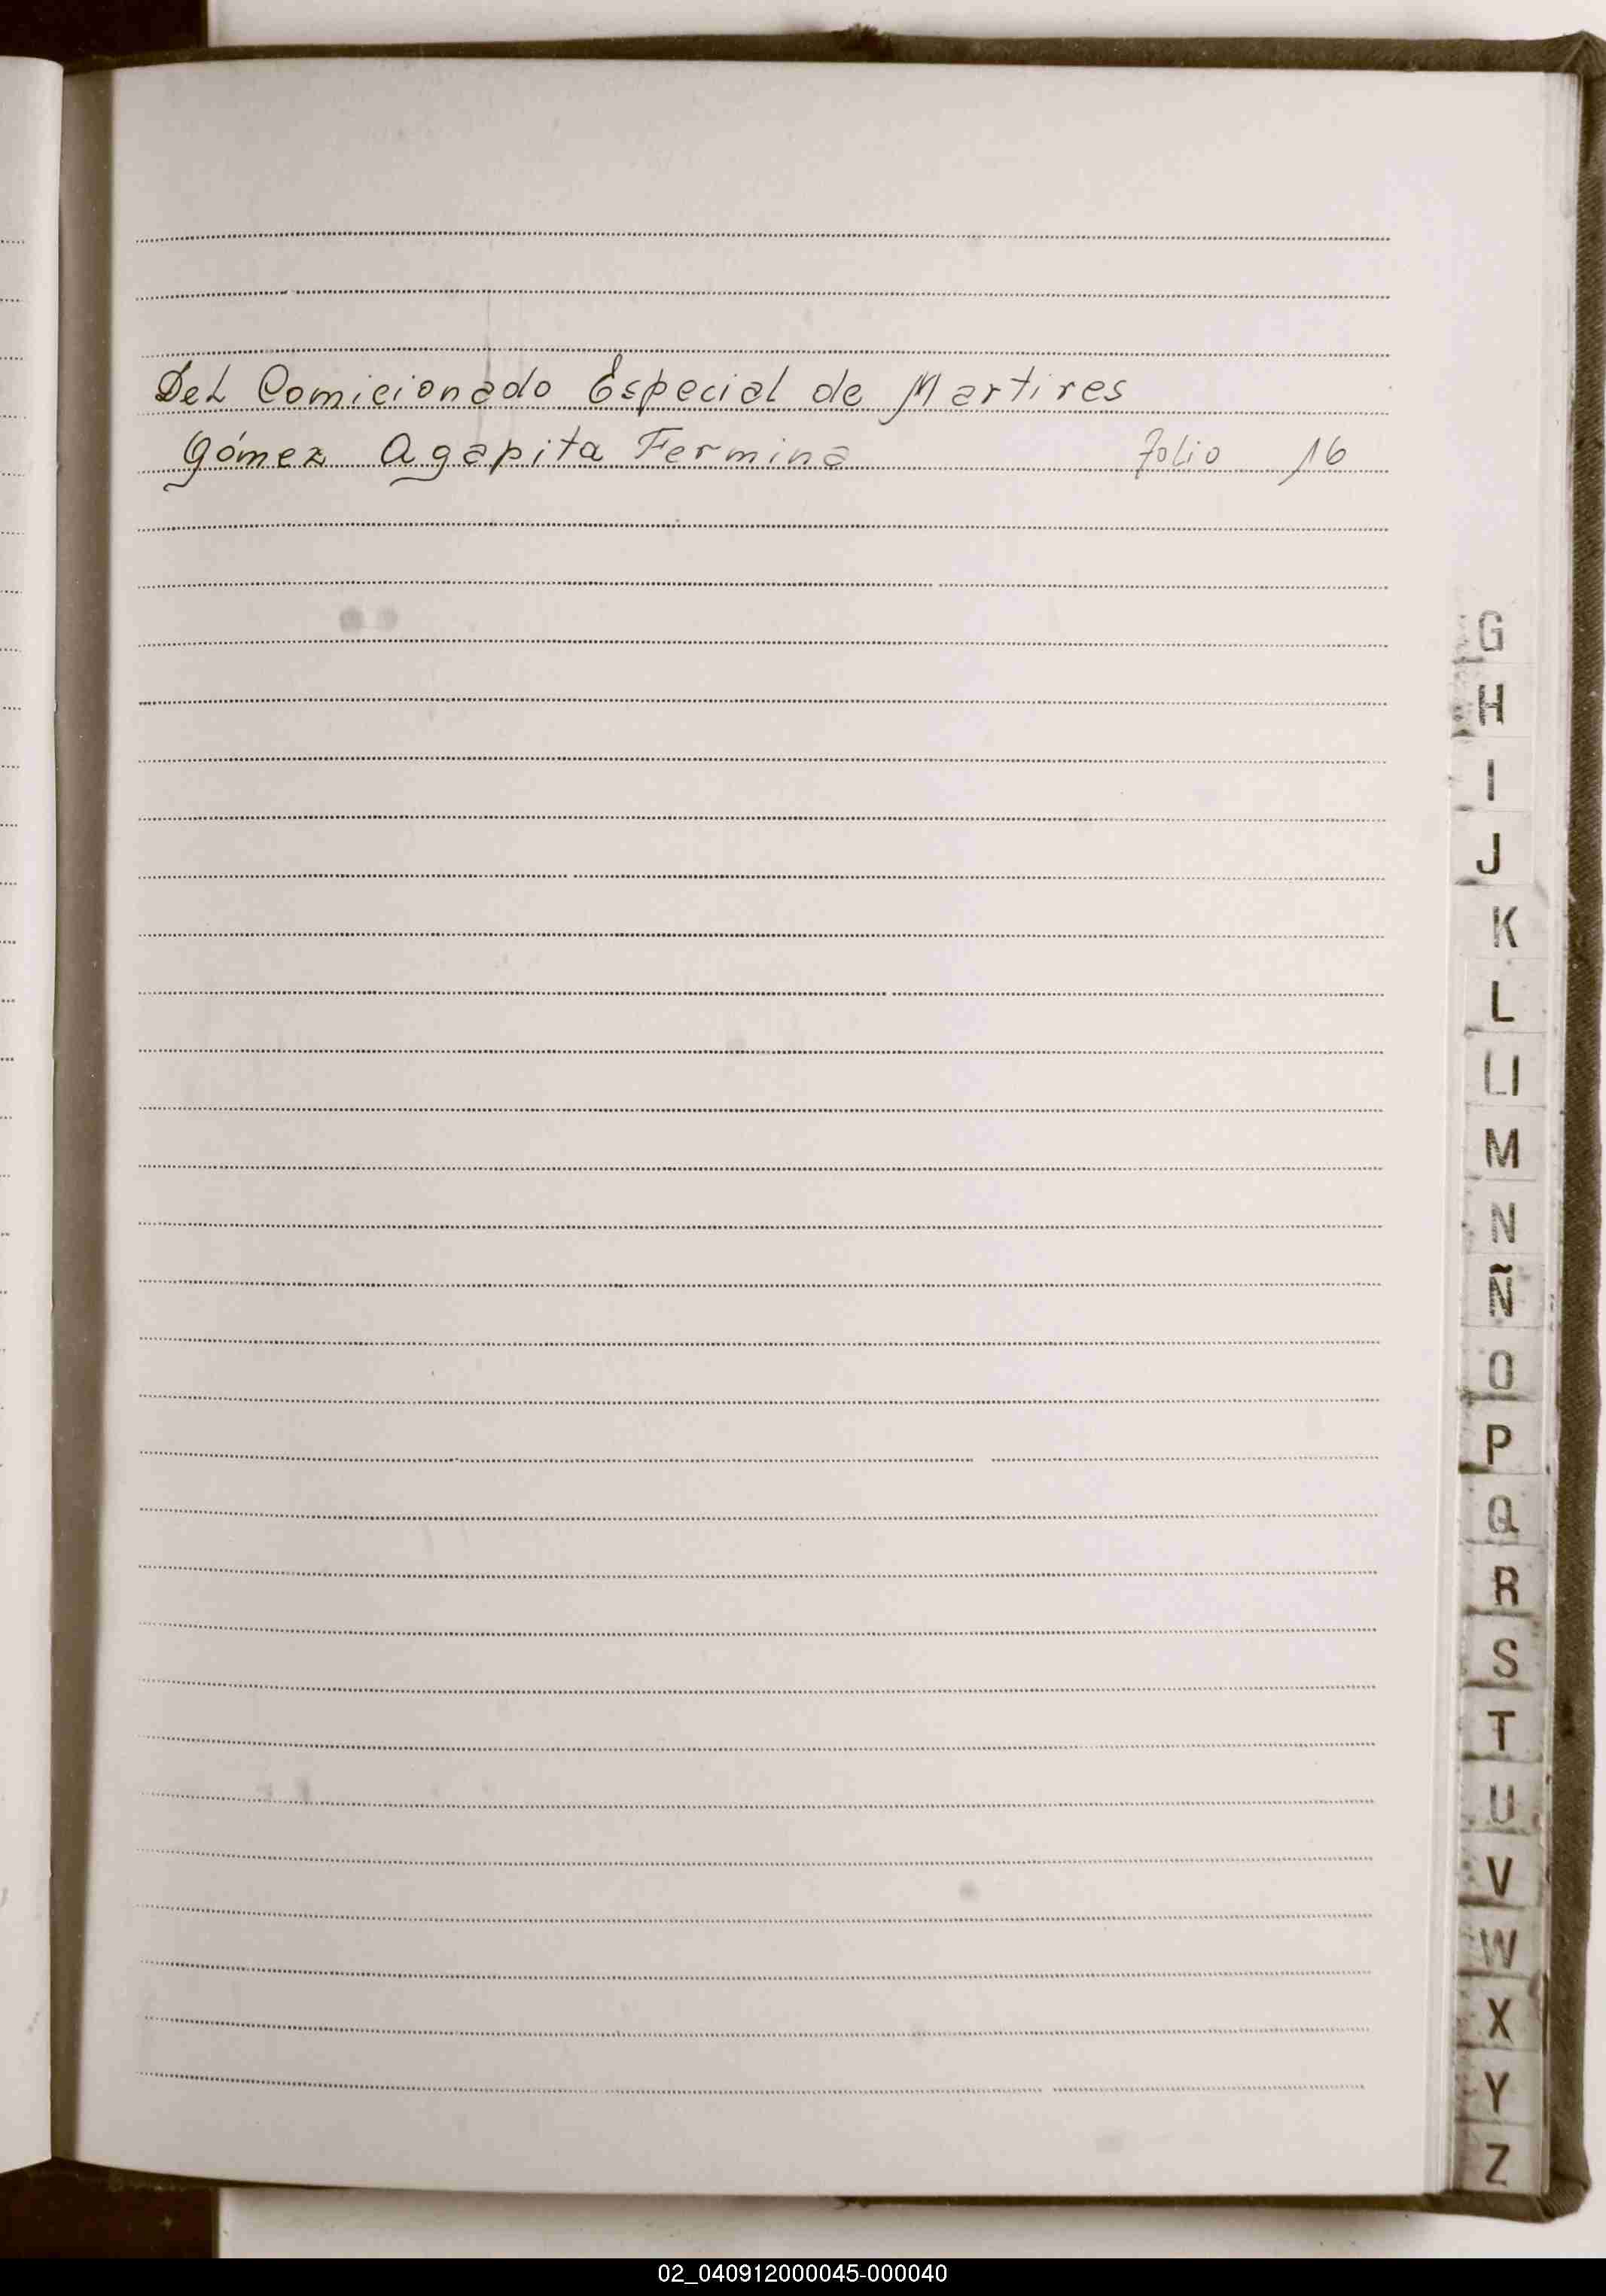 Del Comicionado Especial de Martires
Gómez Agapita Fermina Folio 16
G
H
I
J
K
L
Ll
M
N
Ñ
O
P
Q
R
S
T
U
V
W
X
Y
Z
02_040912000045-000040